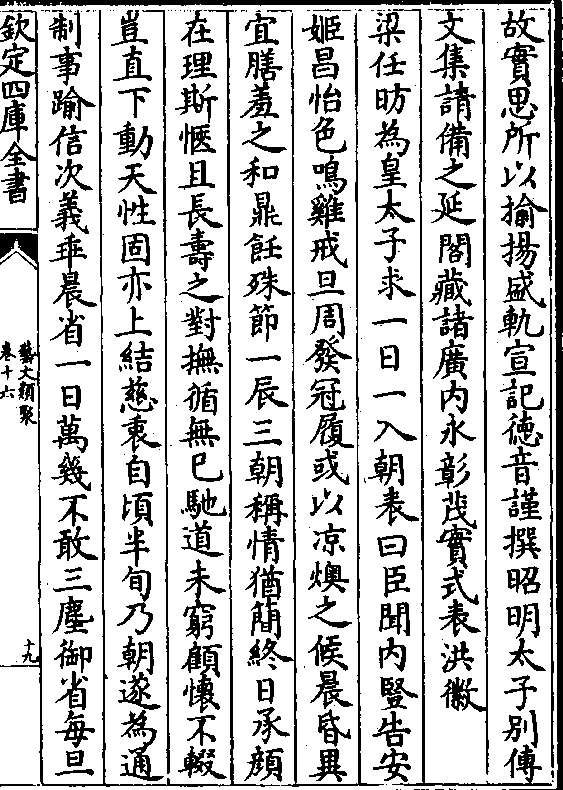 故實思所以揄揚盛軌宣記德音謹撰昭明太子別傳
文集請備之延閣藏諸廣內永彰茂實式表洪徽
梁任昉為皇太子求一日一入朝表曰臣聞內豎告安
姬昌怡色鳴雞戒旦周發冠履或以凉燠之候晨昏異
宜膳羞之和鼎飪殊節一辰三朝稱情猶簡終日承顔
在理斯愜且長壽之對撫循無已馳道未窮顧懷不輟
豈直下動天性固亦上結慈衷自頃半旬乃朝遂為通
制事踰信次義乖晨省一日萬幾不敢三塵御省每旦
欽定四庫全書
藝文類聚
卷十六
十九